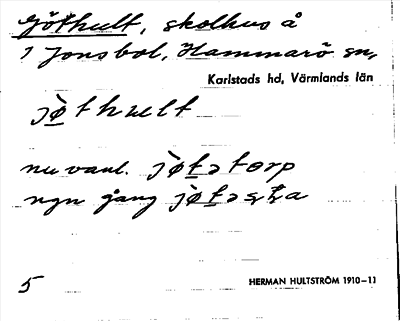 Göthult, skolhus å
1 Jonsbol, Hammarö sn,
Karlstads hd, Värmlands län
jø̀thult
nu vanl. jø̀tətorp
ngn gång
5
HERMAN HULTSTRÖM 1910–11